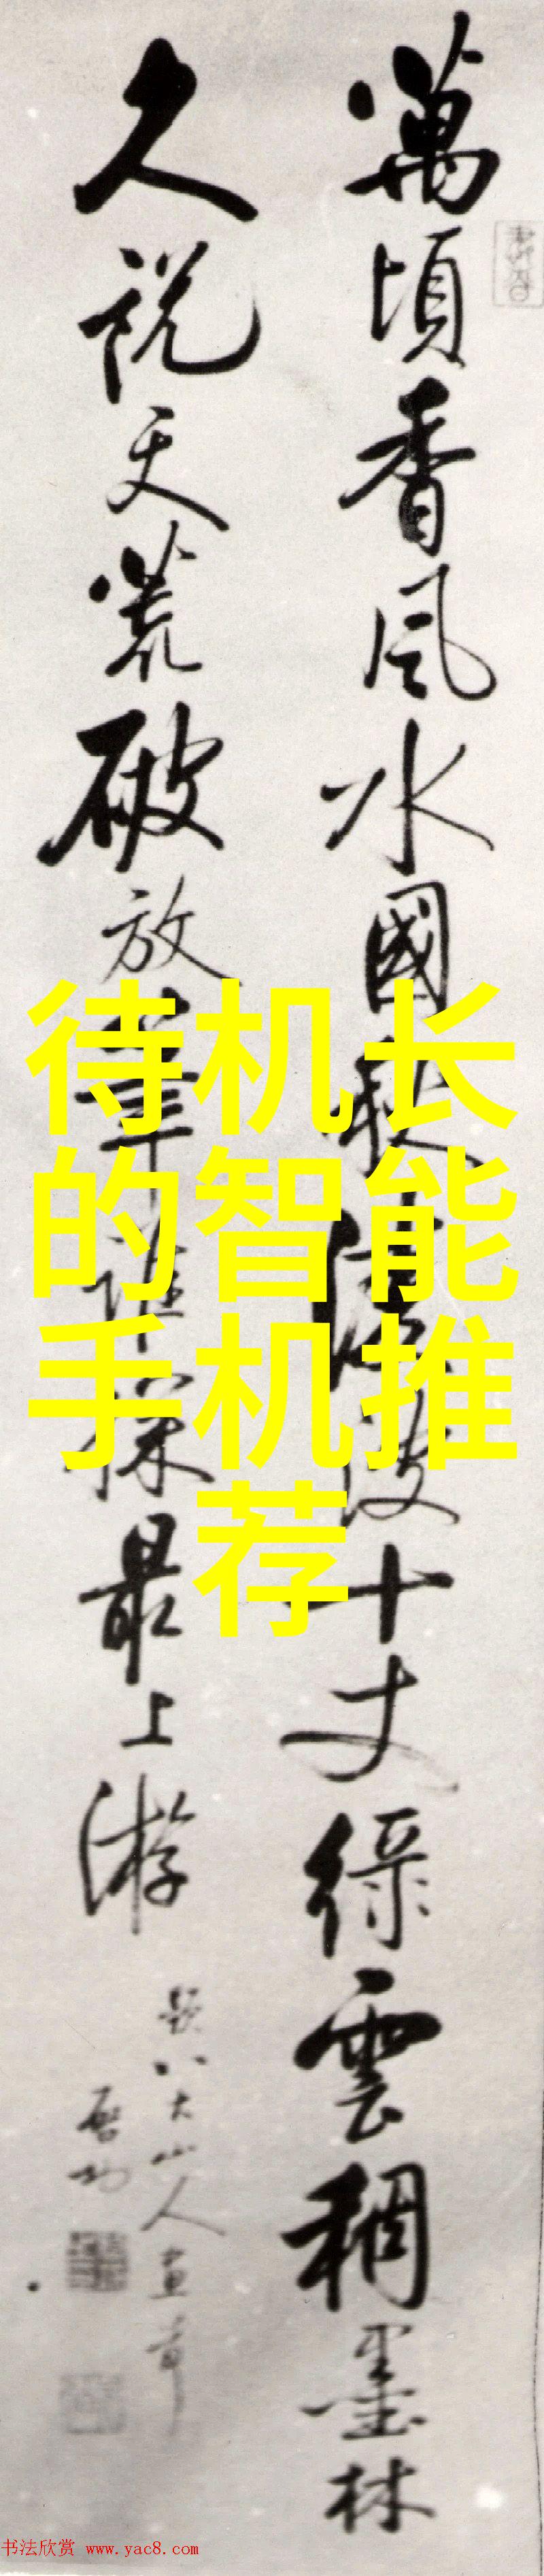 萬頃香風水國秋凌波十丈綠雲稠墨林
久說天荒破放筆誰探最上游
題八大山人畫荷
啓功
待机长
的智能
手机推
荐
书法欣赏 www.yac8.com